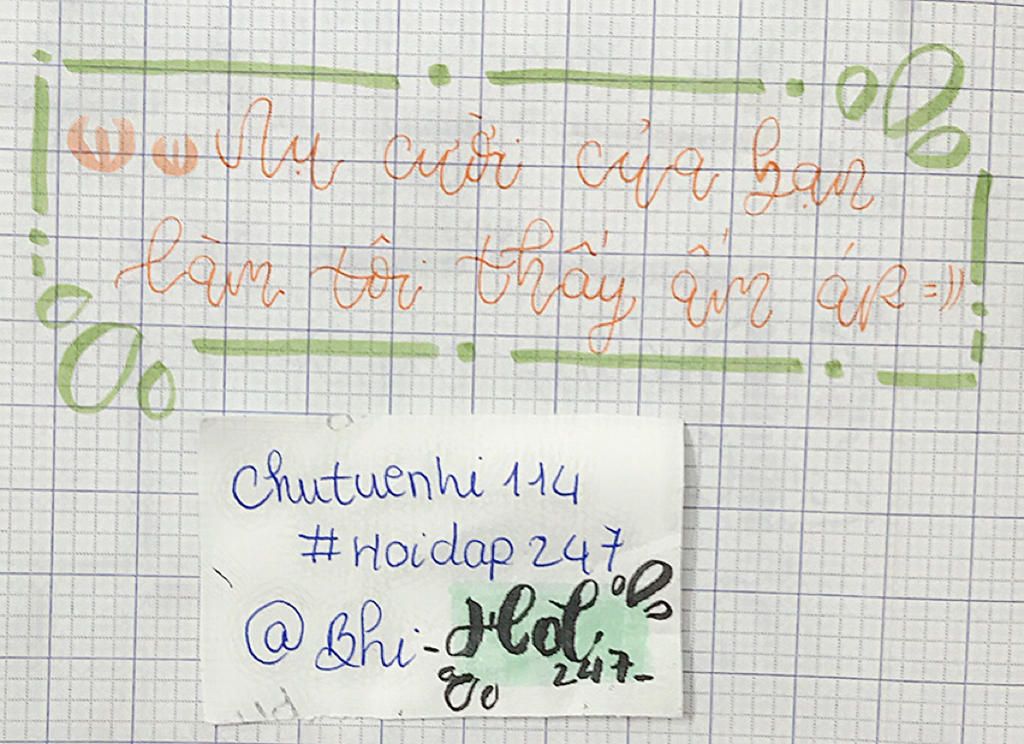 Nụ cười của bạn
làm tôi thấy ấm áp =))
Chutuenhi 114
#Hoidap 247
@Bhi-
247-